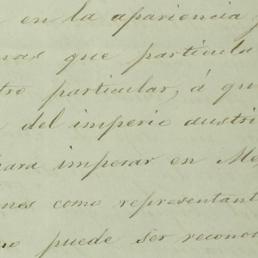 en la apariencia
que particula
particular, á qu
del imperio austri
para imperar en Me
como representant
puede ser recono